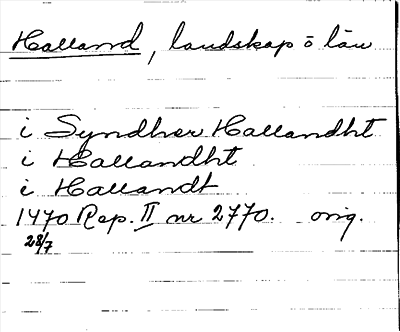 Halland, landskap o län
i Syndher Hallandht
i Hallandht
i Hallandt
1470 Rep. II nr 2770. orig.
28/7